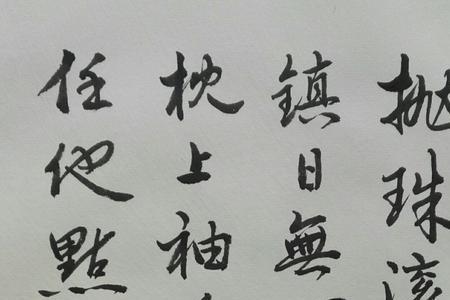 抛珠滚
鎮日無
枕上袖
任他點